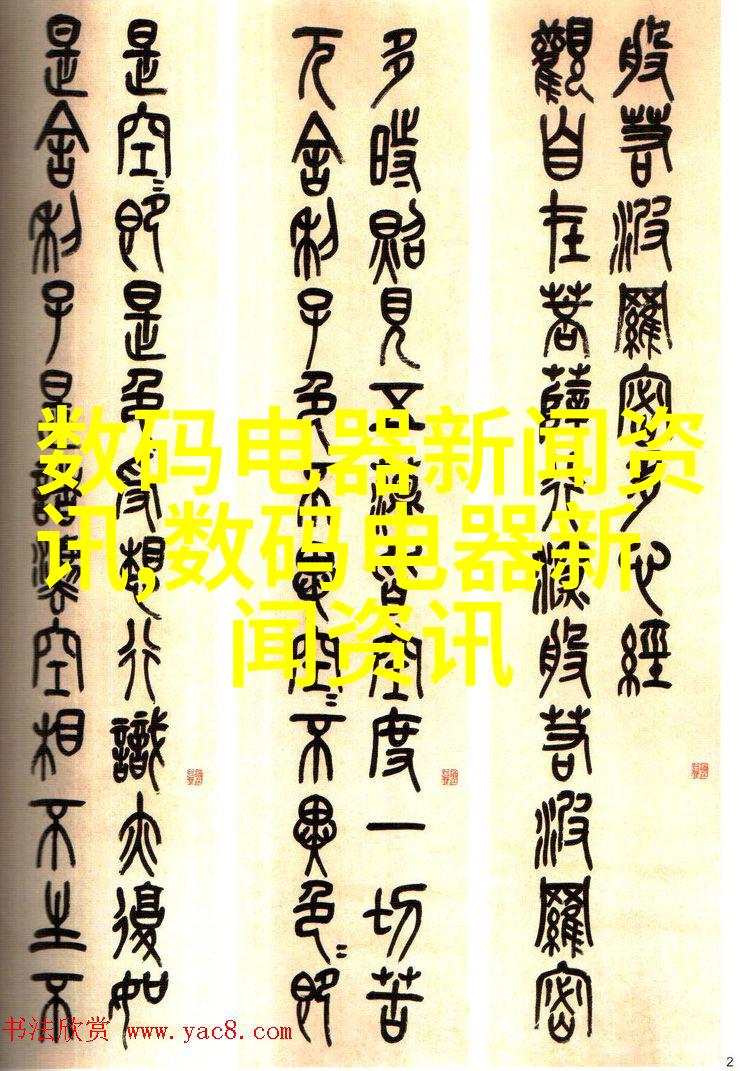 般若波羅密多心經
觀自在菩薩行深般若波羅密
多時照見五蘊皆空度一切苦
厄舍利子色不異空〻不異色〻即
是空〻即是色受想行識亦復如
是舍利子是諸法空相不生不
数码电器新闻资
讯,数码电器新
闻资讯
书法欣赏 www.yac8.com
2